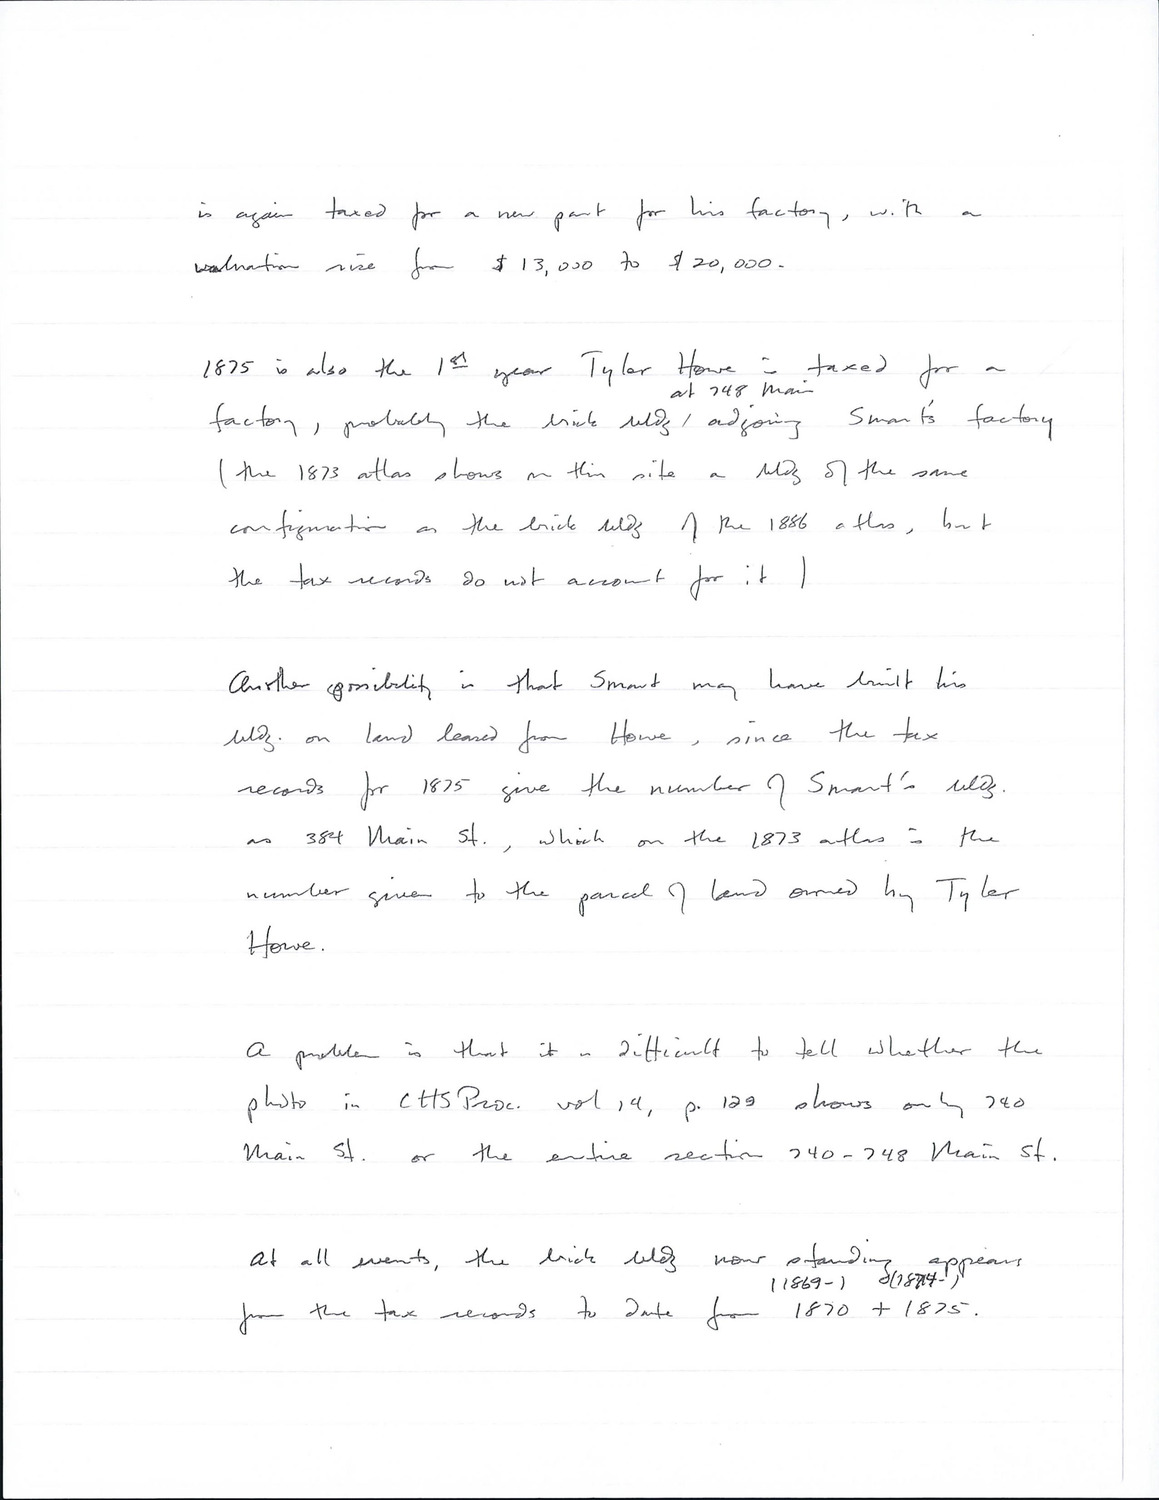 is again taxed for a new part for his factory, with a
valuation rise from $13,000 to $20,000.
1875 is also the 1st year Tyler Howe is taxed for a
at 748 Main
factory, probably the brick bldg / adjoining Smart's factory
(the 1873 atlas shows on this site a bldg of the same
configuration as the brick bldg of the 1886 atlas, but
the tax records do not account for it)
Another possibility is that Smart may have built his
bldg. on land leased from Howe, since the tax
records for 1875 give the number of Smart's bldg.
as 384 Main St., which on the 1873 atlas is the
number given to the parcel of land owned by Tyler
Howe.
A problem is that it is difficult to tell whether the
photo in CHS Proc. vol 14, p. 129 shows only 740
Main St. or the entire section 740-748 Main St.
At all events, the brick bldg now standing appears
(1869-) (1874-)
from the tax records to date from 1870 + 1875.